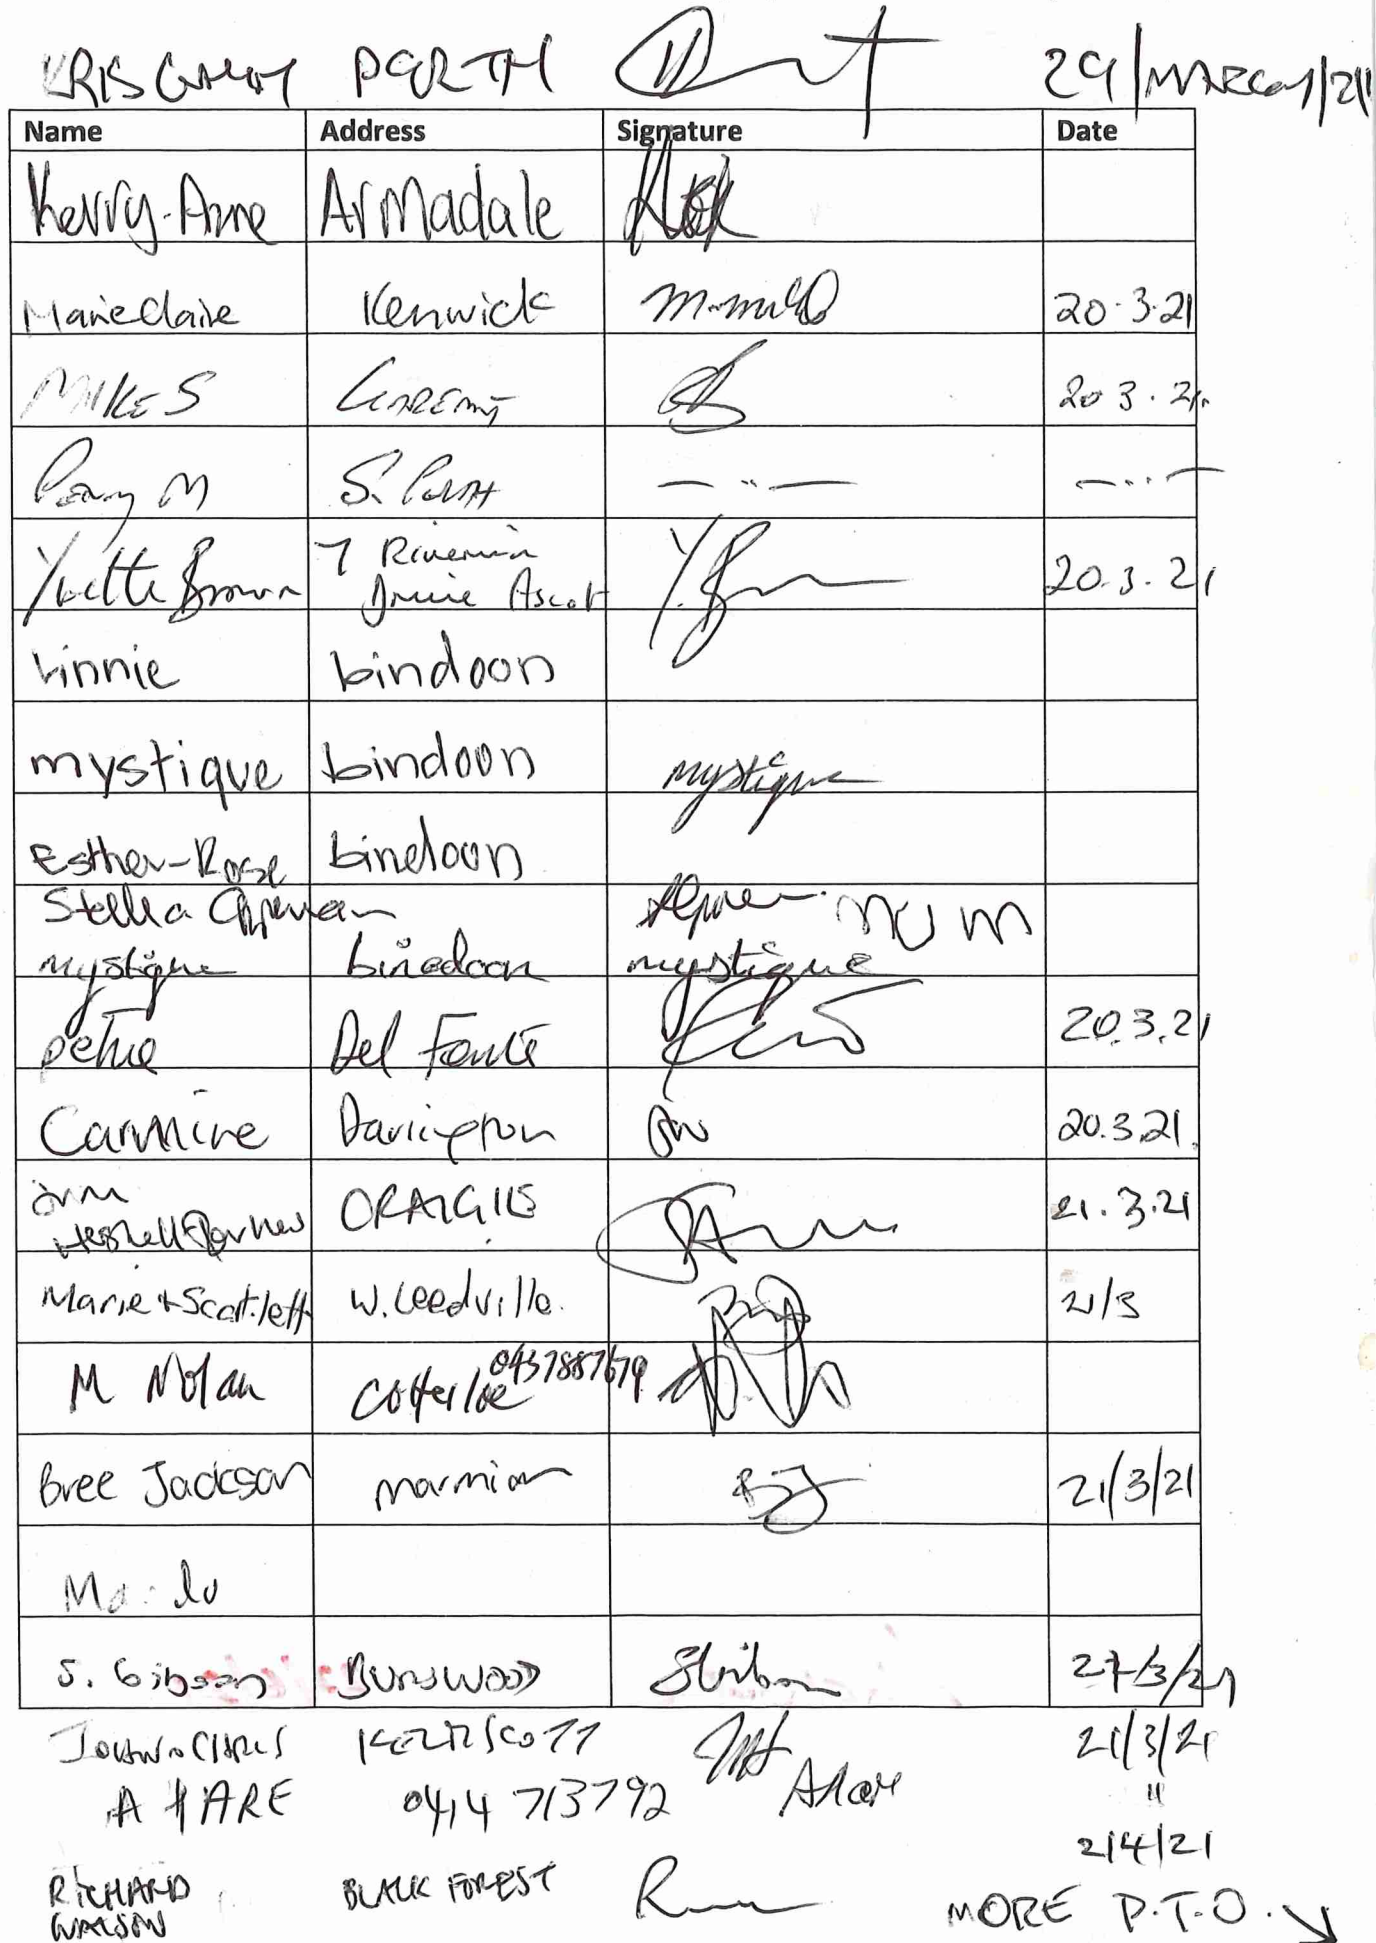 PERTH 29/MARCH/21
Name Address Signature Date
Kerry-Anne Armadale
Marie Claire Kenwick 20.3.21
MIKE S 20.3.21
Penny M S. Perth — .. —
7 Riverview
Yvette Brown Drive Ascot Y. B 20.3.21
Vinnie bindoon
mystique bindoon mystique
Esther-Rose bindoon
Stella NUM
mystique bindoon mystique
Petue Del Fante 20.3.21
Carmine Darlington 20.3.21.
CRAIGIE 21.3.21
Marie + Scarlett W. Leedville. 21/3
M Nolan Cottesloe 0437887679
Bree Jackson marmion BJ 21/3/21
S. Gibson BURSWOOD SGibson 27/3/21
JOHN + CHRIS KELMSCOTT 21/3/21
A HARE 0414 713792 AHare "
2/4/21
RICHARD BLACK FOREST
WATSON
MORE P.T.O.